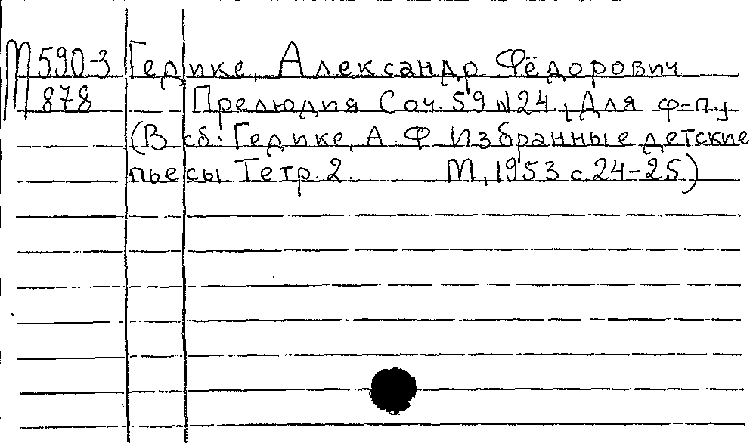 М 590-3 Гедике, Александр Фёдорович
878 Прелюдия Соч. 59 №24 [Для ф-п.]
(В сб: Гедике, А. Ф. Избранные детские
пьесы Тетр. 2. М, 1953 с. 24-25)